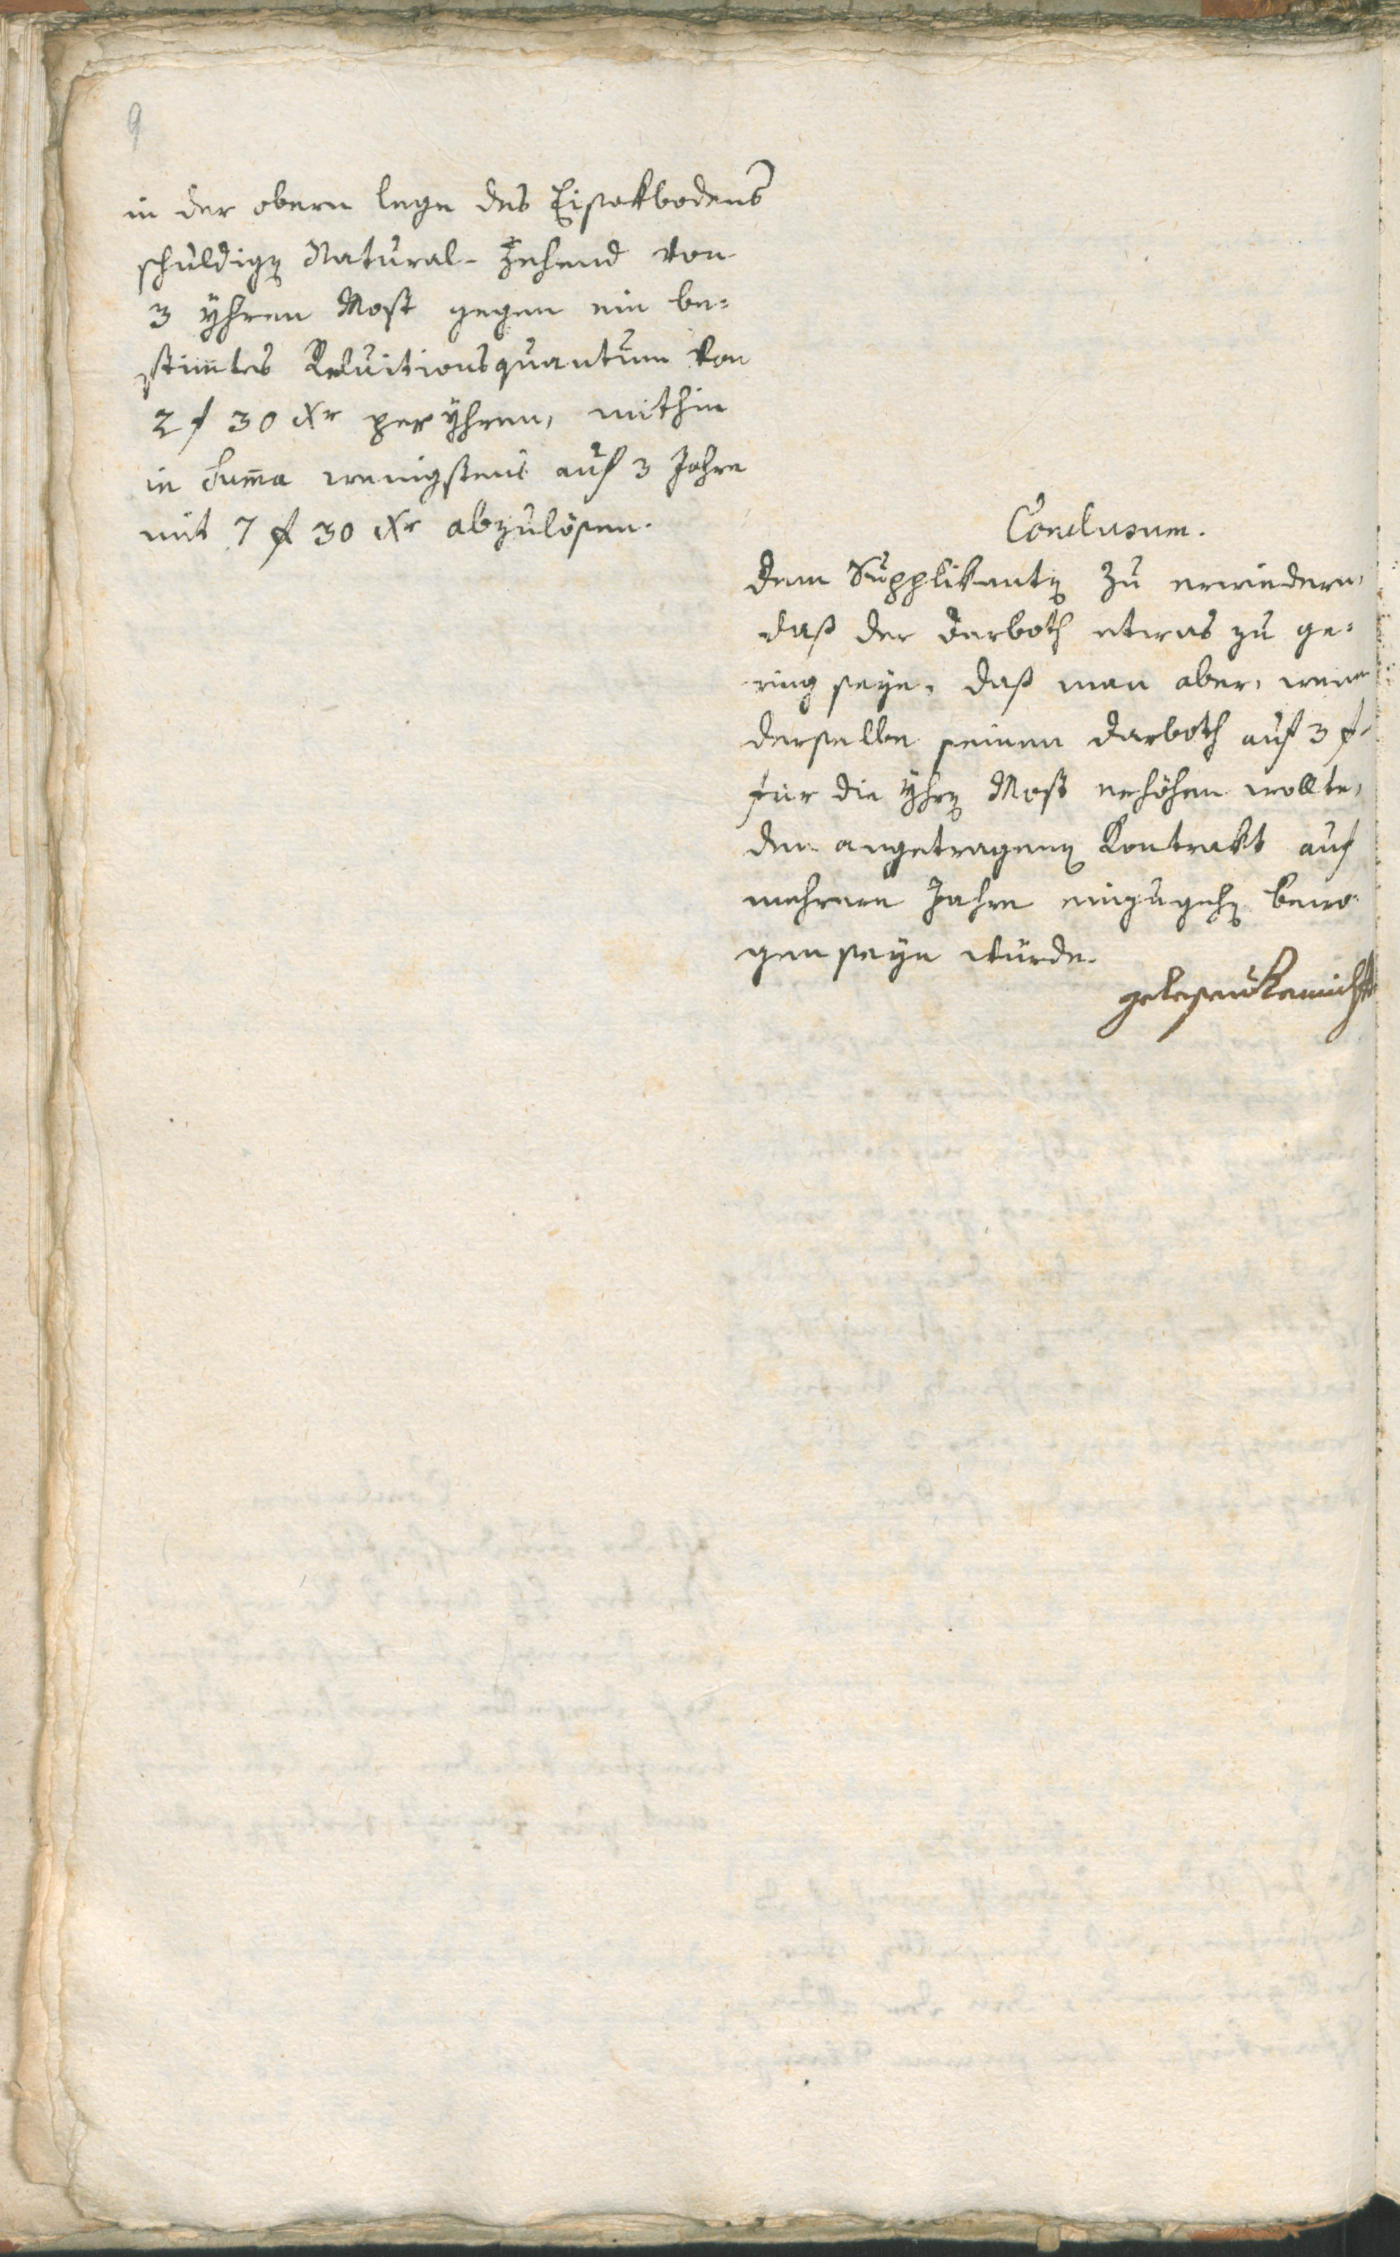 9
in der obern lege des Eisakbodens
schuldigen Natural-Zehend von
3 Yhren Most gegen ein be=
stim̄tes Reluitionsquantum von
2 f 30 xr per Yhren, mithin
in Sum̄a wenigstens auf 3 Jahre
mit 7 f 30 xr abzulösen.
Conclusum.
Dem Supplikanten zu erwiedern,
daß der Darboth etwas zu ge=
ring seye, daß man aber, wenn
derselbe seinen Darboth auf 3 f
für die Yhren Most erhöhen wollte,
den angetragenen Kontrakt auf
mehrere Jahre einzugehen bewo
gen seyn würde.
gelesen